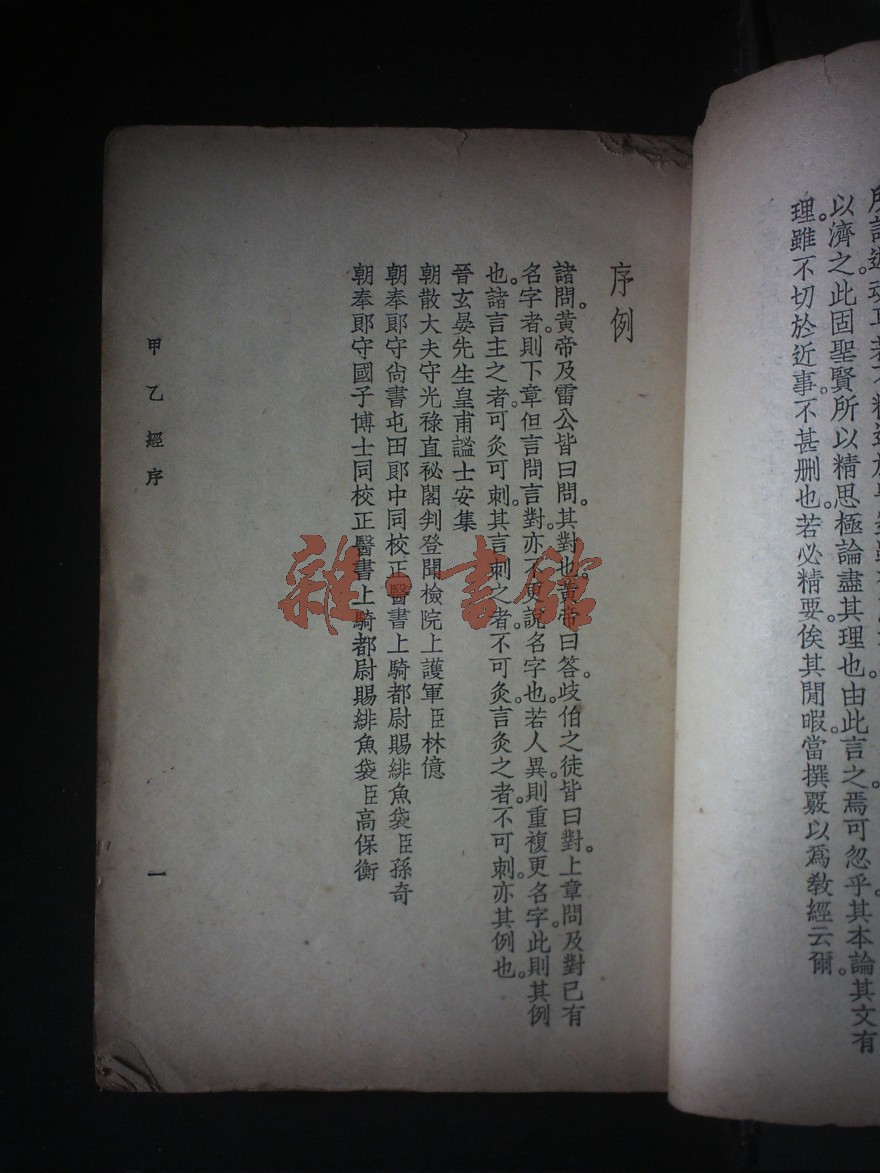 以濟之。此固聖賢所以精思極論盡其理也。由此言之。焉可忽乎。其本論其文有
理。雖不切於近事。不甚刪也。若必精要。俟其閒暇。當撰覈以爲敎經云爾。
序例
諸問。黃帝及雷公皆曰問。其對也。黃帝曰答。歧伯之徒皆曰對。上章問及對已有
名字者。則下章但言問言對。亦不更說名字也。若人異。則重複更名字。此則其例
也。諸言主之者。可灸可刺。其言刺之者。不可灸。言灸之者。不可刺。亦其例也。
晉玄晏先生皇甫謐士安集
朝散大夫守光祿直秘閣判登聞檢院上護軍臣林億
朝奉郞守尙書屯田郞中同校正醫書上騎都尉賜緋魚袋臣孫奇
朝奉郞守國子博士同校正醫書上騎都尉賜緋魚袋臣高保衡
甲乙經序
一
雜·書館